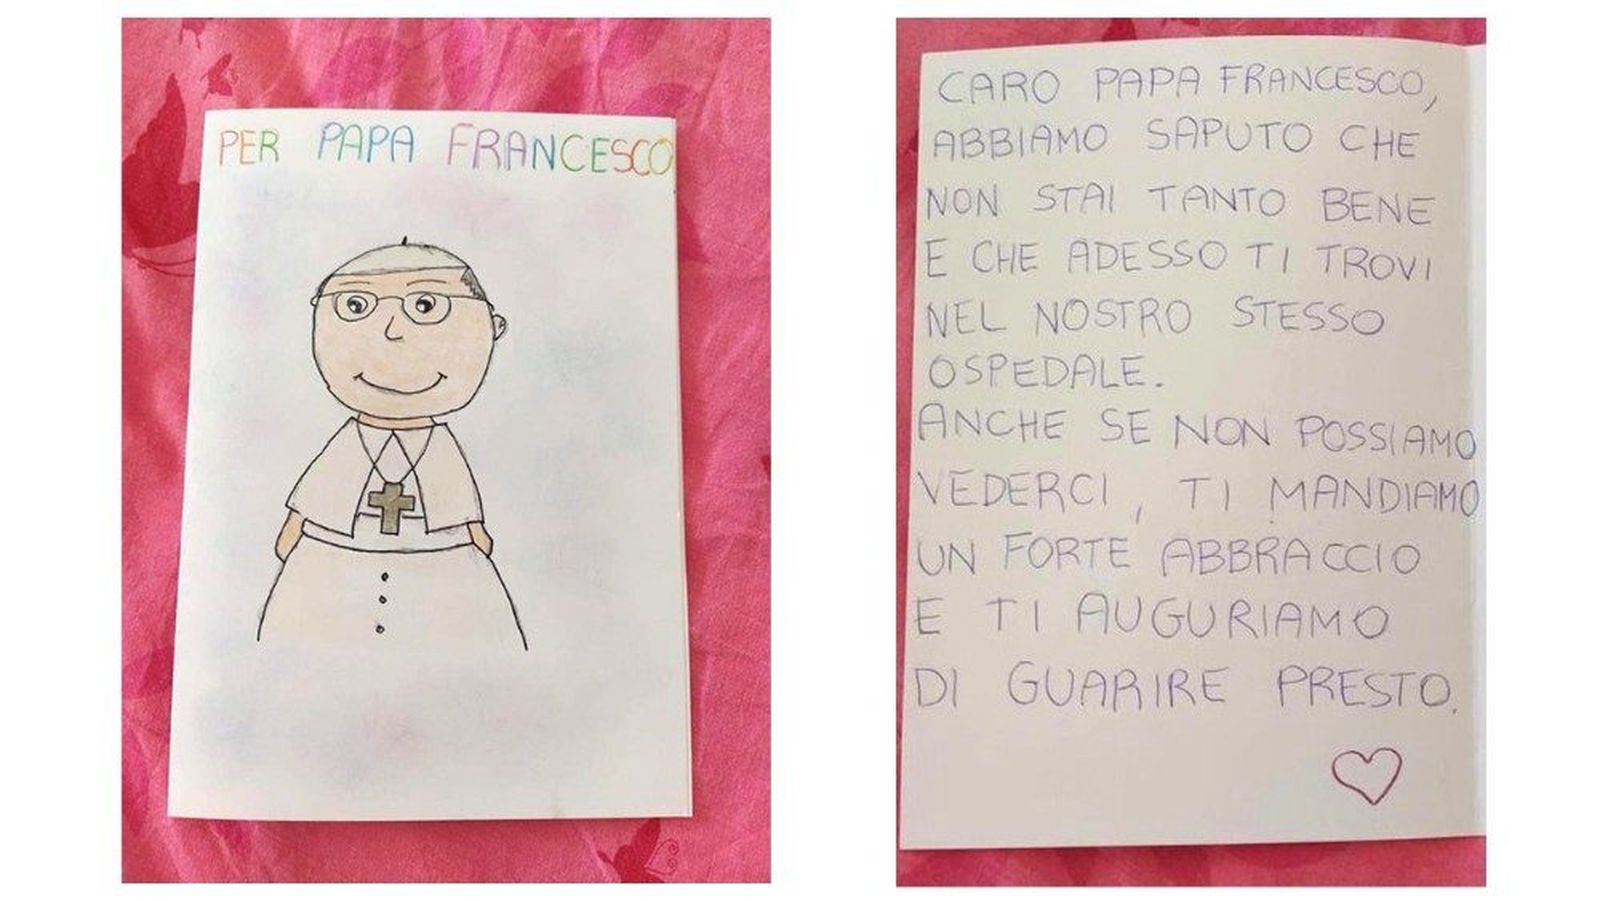 PER PAPA FRANCESCO
CARO PAPA FRANCESCO,
ABBIAMO SAPUTO CHE
NON STAI TANTO BENE
E CHE ADESSO TI TROVI
NEL NOSTRO STESSO
OSPEDALE.
ANCHE SE NON POSSIAMO
VEDERCI, TI MANDIAMO
UN FORTE ABBRACCIO
E TI AUGURIAMO
DI GUARIRE PRESTO.